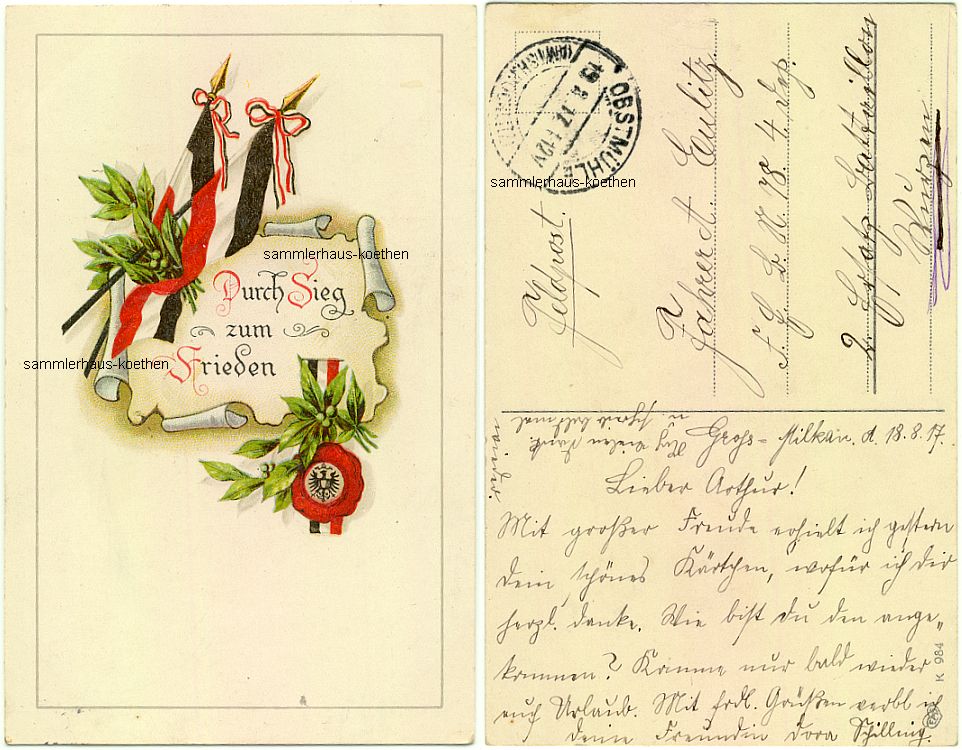 Durch Sieg
zum
Frieden
sammlerhaus-koethen
sammlerhaus-koethen
OBSTMÜHLE
19 8 17
sammlerhaus-koethen
Feldpost.
Fahrer A. Eulitz.
F. E. B. A. 78. 4. Esp.
2. Ersatz Battaillon
Wurzen
Groß-Milkau, d. 18.8.17.
Lieber Arthur!
Mit großer Freude erhielt ich gestern
Dein schönes Kärtchen, wofür ich Dir
herzl. danke. Wie bist Du den ange-
kommen? Komme nur bald wieder
auf Urlaub. Mit frdl. Grüßen verbl. ich
Deine Freundin Dora Schilling.
u. schreib bald mal
wieder.
K 984